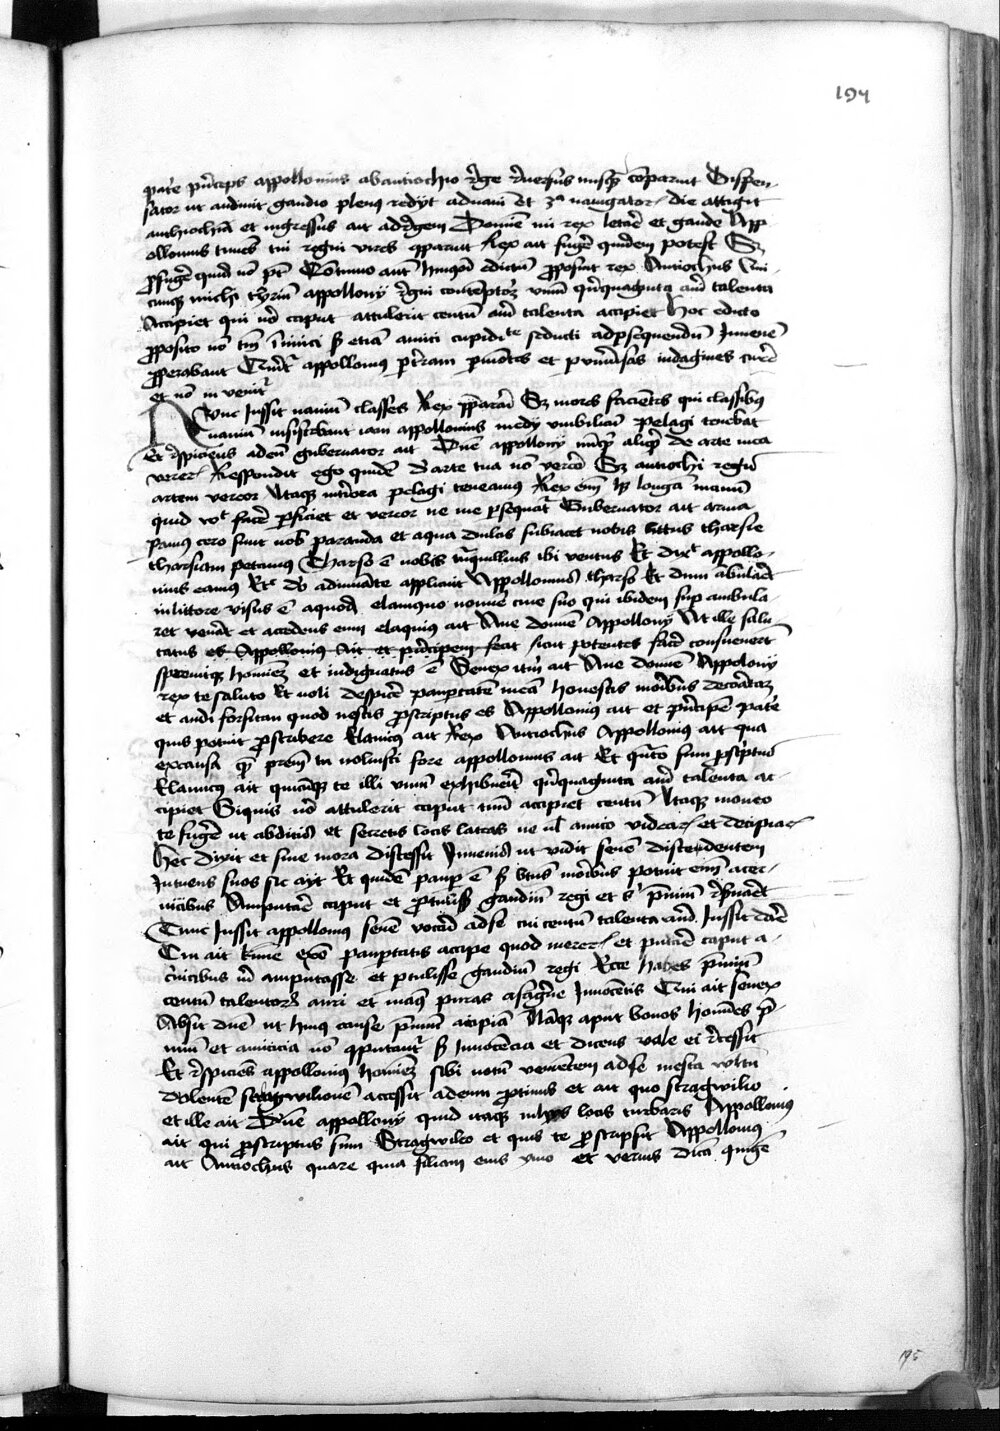 194
pat'e p'nceps appollonius ab antiochio rege reversus nusq' comparuit Dispen-
sator ut audivit gaudio plenus redyt ad navi Et 3a navigator' die attigit
anthiochiā et ingressus ait ad regem Domine mi rex letare et gaude App
ollonius timens tui regni vires apparuit Rex ait fuge' quidem potest S3
effuge' quid' nō pt Continuo autē hui'modi edictū p'posuit rex Antiochus Qui
cunq' michi thirium appollony regni contemptorē vivum quinquaginta auri talenta
Accipiet qui v'o caput attulerit centū auri talenta accipiet Hoc edicto
p'posito nō tm inimici s' etiā amici cupiditate seducti ad p'sequendū Juvenē
p'perabant Querit' appollonius p' terram p' montes et p' universas indagines terre
et nō invenit'
Nunc Jussit naviū classes Rex p'parari S3 moras faciētes qui classibus
naviū insistebant iam appollonius medy umbiliciū pelagi tenebat
Et respiciens ad eū gubernator ait Dūe appollony nūquid aliq' de arte mea
vereris Respondit ego quidē de arte tua nō vereor S3 antiochi regis
artem vereor Itaq' interiora pelagi teneamus Rex enī h3 longā manū
quid volt face' p'ficiet et vereor ne me p'sequat' Gubernator ait arma
p'amus cero sunt nob' paranda et aqua dulcis subiacet nobis littus tharsie
tharsiam petamus Tharso ē nobis tranquillius ibi ventus Et dixit appollo-
nius eamus Et do adiuvāte applicuit Appollonius tharso Et dum ambularet
in littore visus ē a quodā elamquo nomine cive suo qui ibidem sup' ambula-
ret venerat et accedens eum elaquius ait Ave domine Appollony At ille salu
tatus es Appollonius Ait et principem fecit sicut potentes face' consueverūt
sprevitq' hominē et indignatus ē Senex itm ait Ave domine Appollony
rex te saluto Et noli despice' paup'tatē meā honestis moribus decoratā
et audi forsitan quod nescis p'scriptus es Appollonius ait et principē pat'e
quis potuit p'scribere Elamcus ait Rex Antiochus Appollonius ait qua
ex causa q' prem tu voluisti fore appollonius ait Et quāto sum p'scriptus
Elamcus ait quicūq' te illi vivum exhibuerit quinquaginta auri talenta ac-
cipiet Siquis v'o attulerit caput tuū accipiet centū Itaq' moneo
te fuge' ut abditis et secretis locis lateas ne ul' amico videaris et decipiaris
Hec dixit et sine mora discessit Juvenis ut vidit senē discendentem
Intuens suos sic ayt Et quidē paup' ē s' bonis moribus potuit enī a cer-
vicibus Amputare caput et p'tulisse gaudiū regi et s' premiū reportare
Tunc Jussit appollonius senē vocari ad se cui centū talenta auri Jussit dare
Cui ait hūc exē paup'tatis accipe quod mereris et putare caput a
cervicibus m' amputasse et p'tulisse gaudiū regi Ecce habes premiū
centū talentorū auri et manus puras a sagūie Innocentis Cui ait senex
Absit dūe ut huius cause premiū accipiā Nāq' aput bonos homines p're
mium et amicicia nō cōputantur s' Innocencia et dicens vale ei recessit
Et respiciēs appollonius hominē sibi notū venientem ad se mesta vultu
dolentē stragwilionē accessit ad eum protinus et ait quo stragwilio
et ille ait Dūe appollony quid itaq' in hys locis turbaris Appollonius
ait qui p'scriptus sum Stragwilio et quis te p'scripsit Appollonius
ait Antiochus quare quia filiam eius ymo et verius dicā coniugē
195